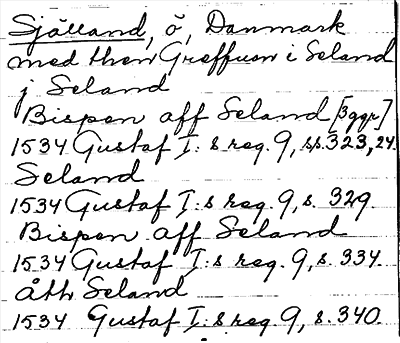 Själland, ö, Danmark
med then Greffuen i Seland
j Seland
Bispen aff Seland [3 ggr]
1534 Gustaf I:s reg. 9, ss. 323, 24.
Seland
1534 Gustaf I:s reg. 9, s. 329.
Bispen aff Seland
1534 Gustaf I:s reg. 9, s. 334.
åth Seland
1534 Gustaf I:s reg. 9, s. 340.